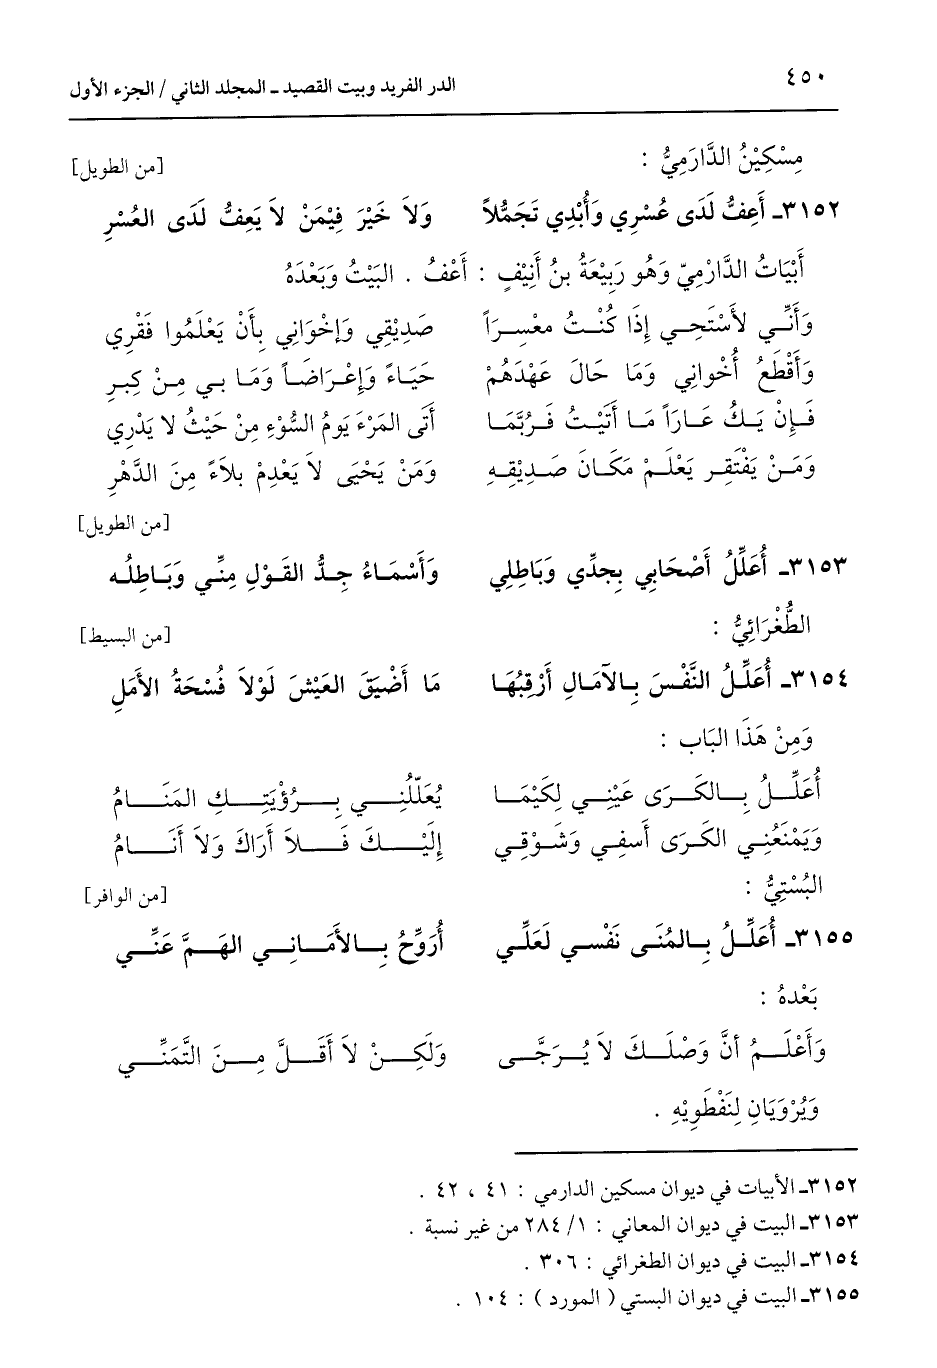 ٤٥٠ الدر الفريد وبيت القصيد ـ المجلد الثاني / الجزء الأول
مِسْكِيْنُ الدَّارَمِيُّ : [من الطويل]
٣١٥٢ـ أَعِفُّ لَدَى عُسْرِي وَأُبْدِي تَجَمُّلاً وَلاَ خَيْرَ فِيْمَنْ لاَ يَعِفُّ لَدَى العُسْرِ
أَبْيَاتُ الدَّارْمِيّ وَهُو رَبِيْعَةُ بنُ أُنَيْفٍ : أَعْفُ . البَيْتُ وَبَعْدَهُ
وَأَنِّي لأَسْتَحِي إِذَا كُنْتُ معْسِرَاً صَدِيْقِي وَإخْوَانِي بِأَنْ يَعْلَمُوا فَقْرِي
وَأَقْطَعُ أُخْوانِي وَمَا حَالَ عَهْدَهُمْ حَيَاءً وَإِعْرَاضَاً وَمَا بي مِنْ كِبرِ
فَإِنْ يَكُ عَارَاً مَا أَتَيْتُ فَرُبَّمَا أَتَى المَرْءَ يَومُ السُّوْءِ مِنْ حَيْثُ لا يَدْرِي
وَمَنْ يَفْتَقِر يَعْلَمْ مَكَانَ صَدِيْقِهِ وَمَنْ يَحْيَى لاَ يَعْدِمْ بلاَءً مِنَ الدَّهْرِ
[من الطويل]
٣١٥٣ـ أُعَلِّلُ أَصْحَابِي بِجدِّي وَبَاطِلِي وَأَسْمَاءُ جِدُّ القَوْلِ مِنِّي وَبَاطِلُه
الطُّغْرَائِيُّ : [من البسيط]
٣١٥٤ـ أُعَلِّلُ النَّفْسَ بِالآمَالِ أَرْقِبُهَا مَا أَضْيَقَ العَيْشَ لَوْلاَ فُسْحَةُ الأَمَلِ
وَمِنْ هَذَا البَاب :
أُعَلِّلُ بِالكَرَى عَيْنِي لِكَيْمَا يُعَلّلُنِي بِرُؤْيَتِكِ المَنَامُ
وَيَمْنَعُنِي الكَرَى أَسفِي وَشَوْقِي إِلَيْكَ فَلاَ أَرَاكَ وَلاَ أَنَامُ
البُسْتِيُّ : [من الوافر]
٣١٥٥ـ أُعَلِّلُ بِالمُنَى نَفْسي لَعَلِّي أُرَوِّحُ بِالأَمَانِي الهَمَّ عَنِّي
بَعْدهُ :
وَأَعْلَمُ أنَّ وَصْلَكَ لاَ يُرَجَّى وَلَكِنْ لاَ أَقَلَّ مِنَ التَّمَنِّي
وَيُرْوَيَانِ لِنَفْطَوَيْهِ .
٣١٥٢ـ الأبيات في ديوان مسكين الدارمي : ٤١ ، ٤٢ .
٣١٥٣ـ البيت في ديوان المعاني : ١/ ٢٨٤ من غير نسبة .
٣١٥٤ـ البيت في ديوان الطغرائي : ٣٠٦ .
٣١٥٥ـ البيت في ديوان البستي ( المورد ) : ١٠٤ .